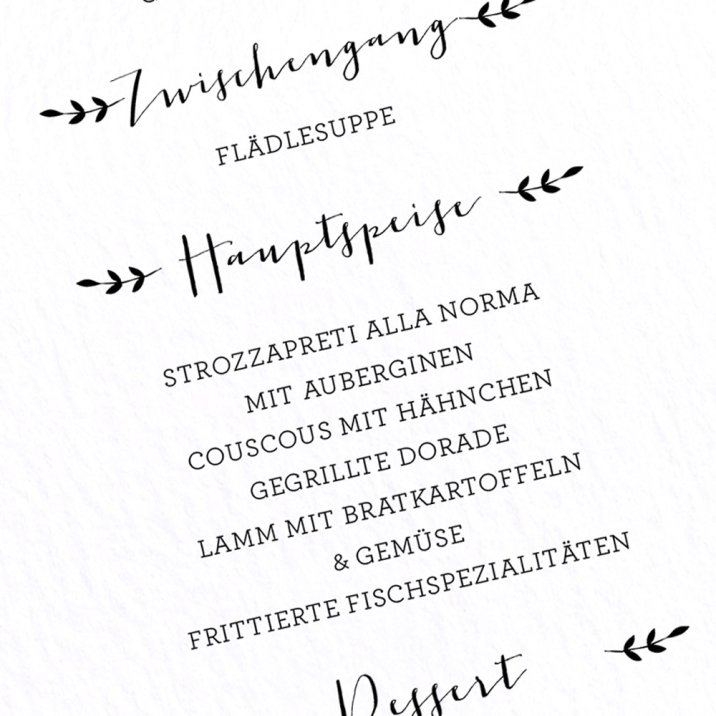 Zwischengang
FLÄDLESUPPE
Hauptspeise
STROZZAPRETI ALLA NORMA
MIT AUBERGINEN
COUSCOUS MIT HÄHNCHEN
GEGRILLTE DORADE
LAMM MIT BRATKARTOFFELN
& GEMÜSE
FRITTIERTE FISCHSPEZIALITÄTEN
Dessert